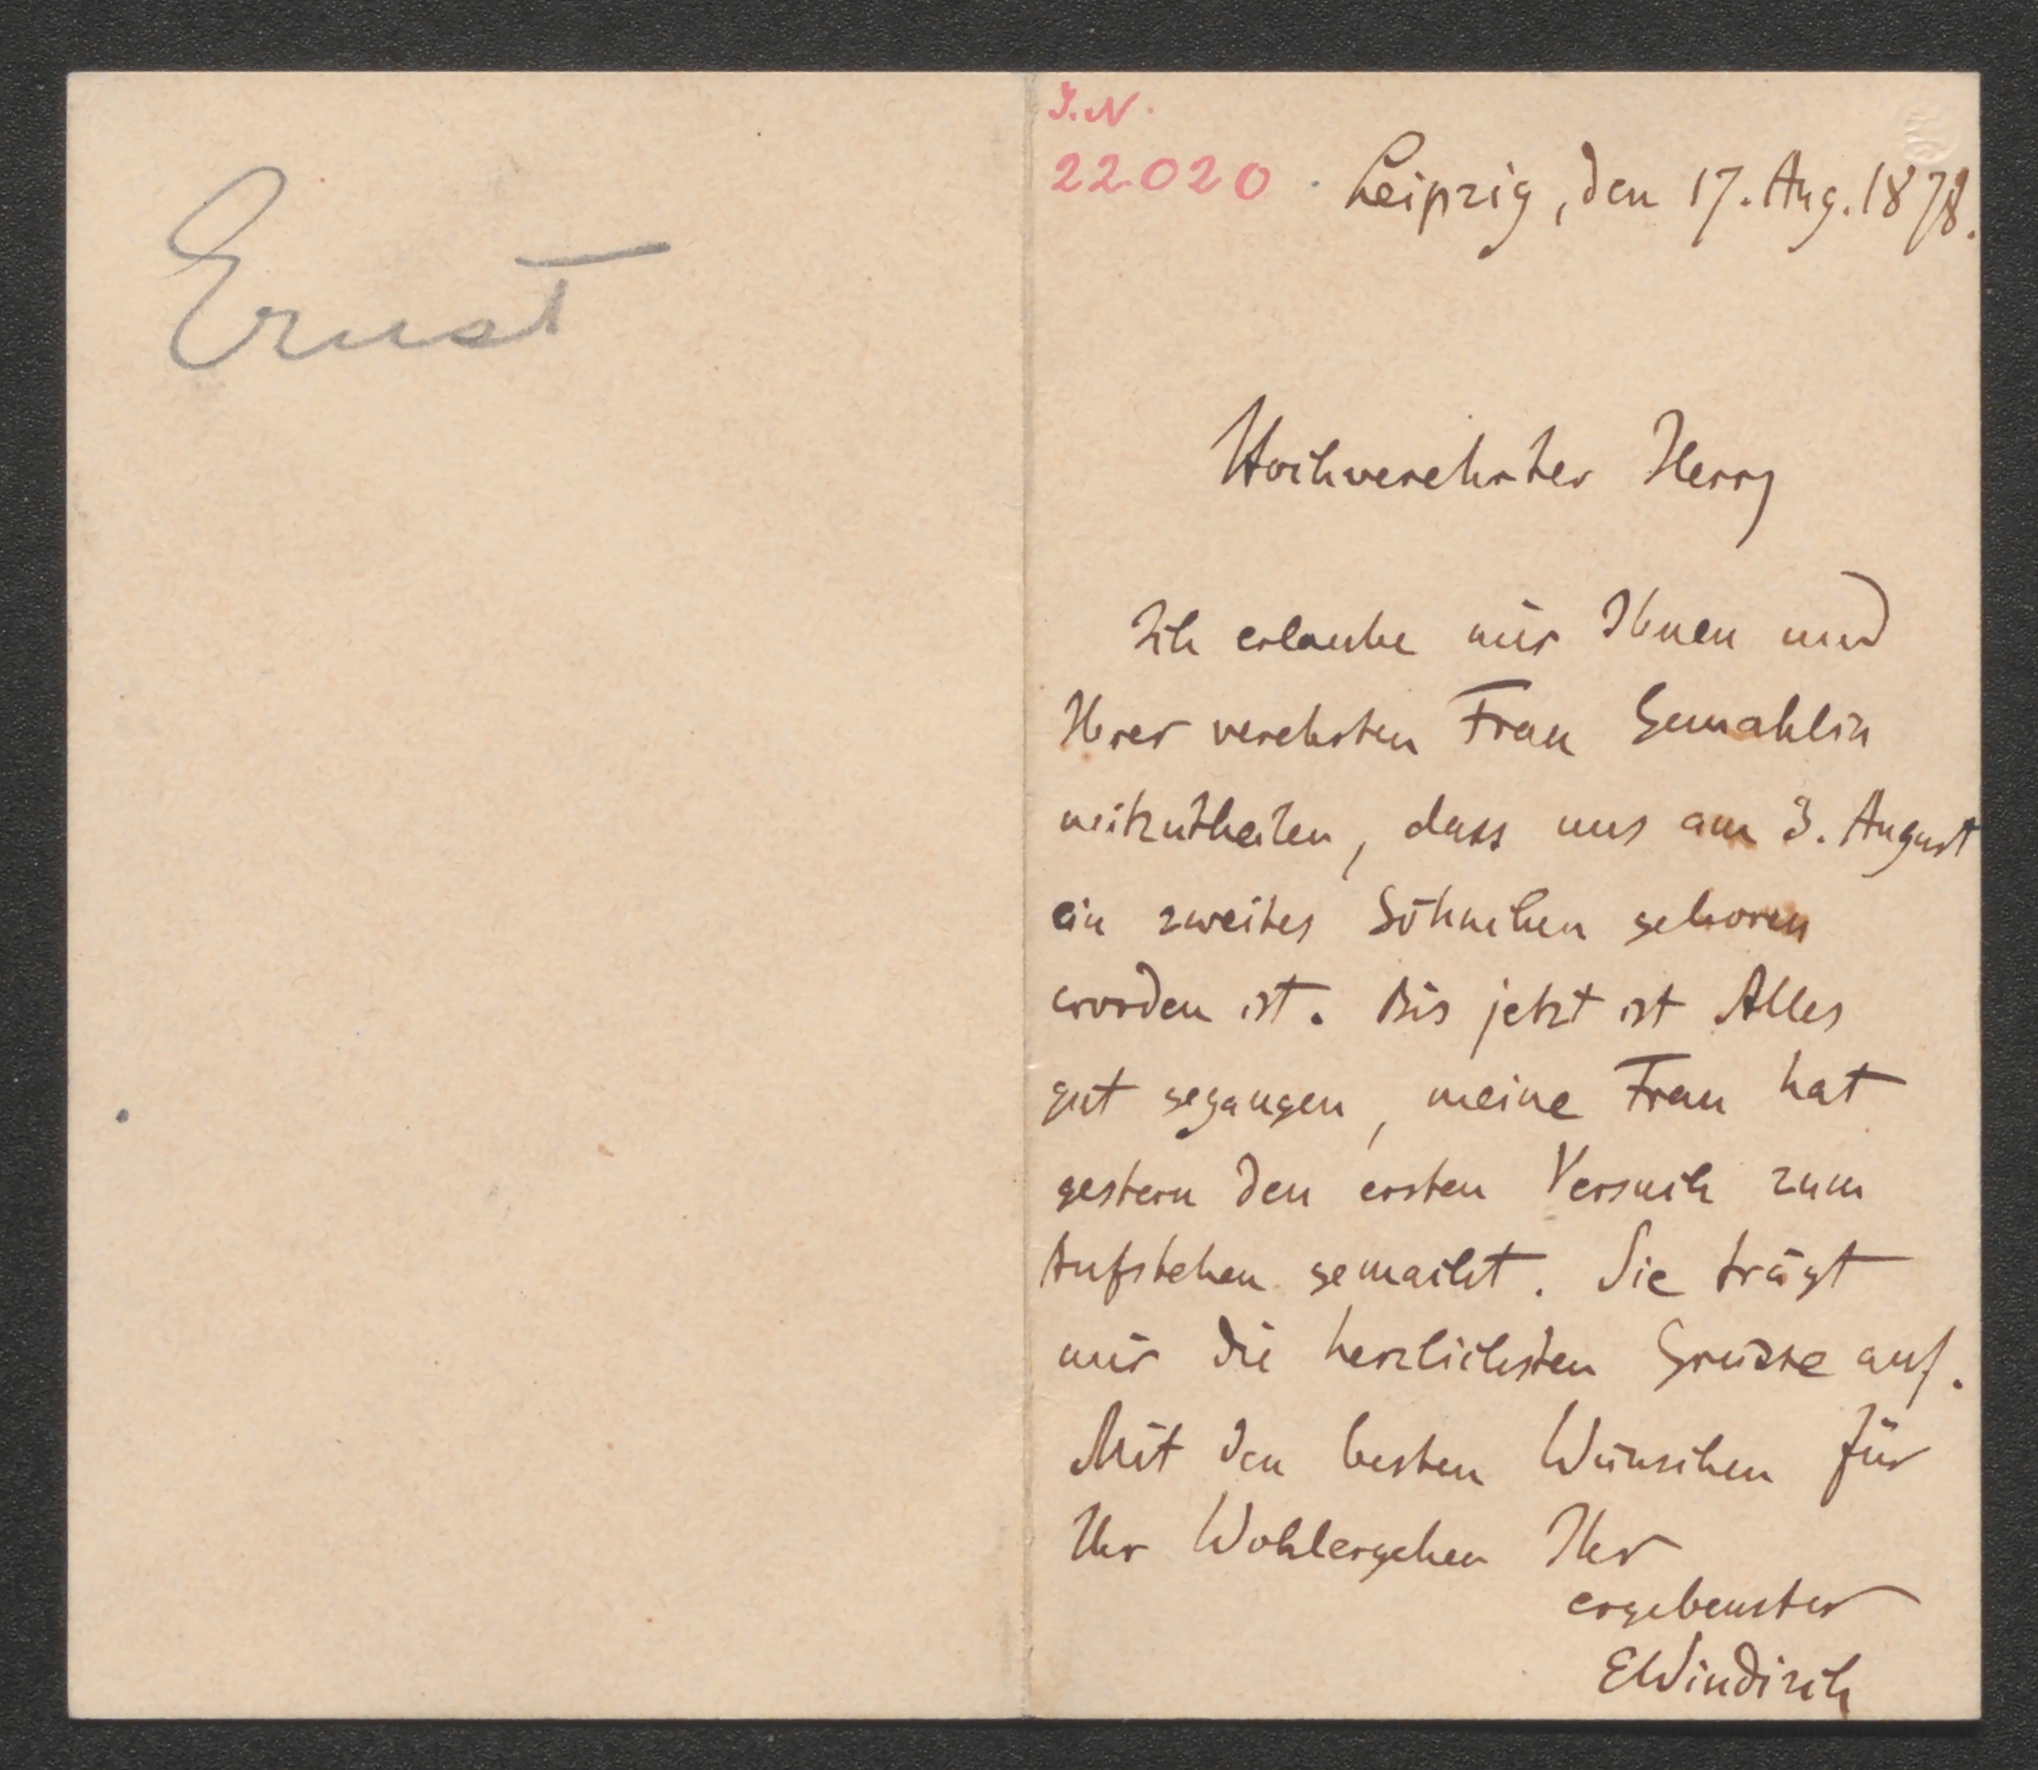 Ernst
I.N.
22.020
Leipzig, den 17. Aug. 1878.
Hochverehrter Herr,
Ich erlaube mir Ihnen und
Ihrer verehrten Frau Gemahlin
mitzutheilen, dass uns am 3. August
ein zweites Söhnchen geboren
worden ist. Bis jetzt ist Alles
gut gegangen, meine Frau hat
gestern den ersten Versuch zum
Aufstehen gemacht. Sie trägt
mir die herzlichsten Grüsse auf.
Mit den besten Wünschen für
Ihr Wohlergehen Ihr
ergebenster
EWindisch